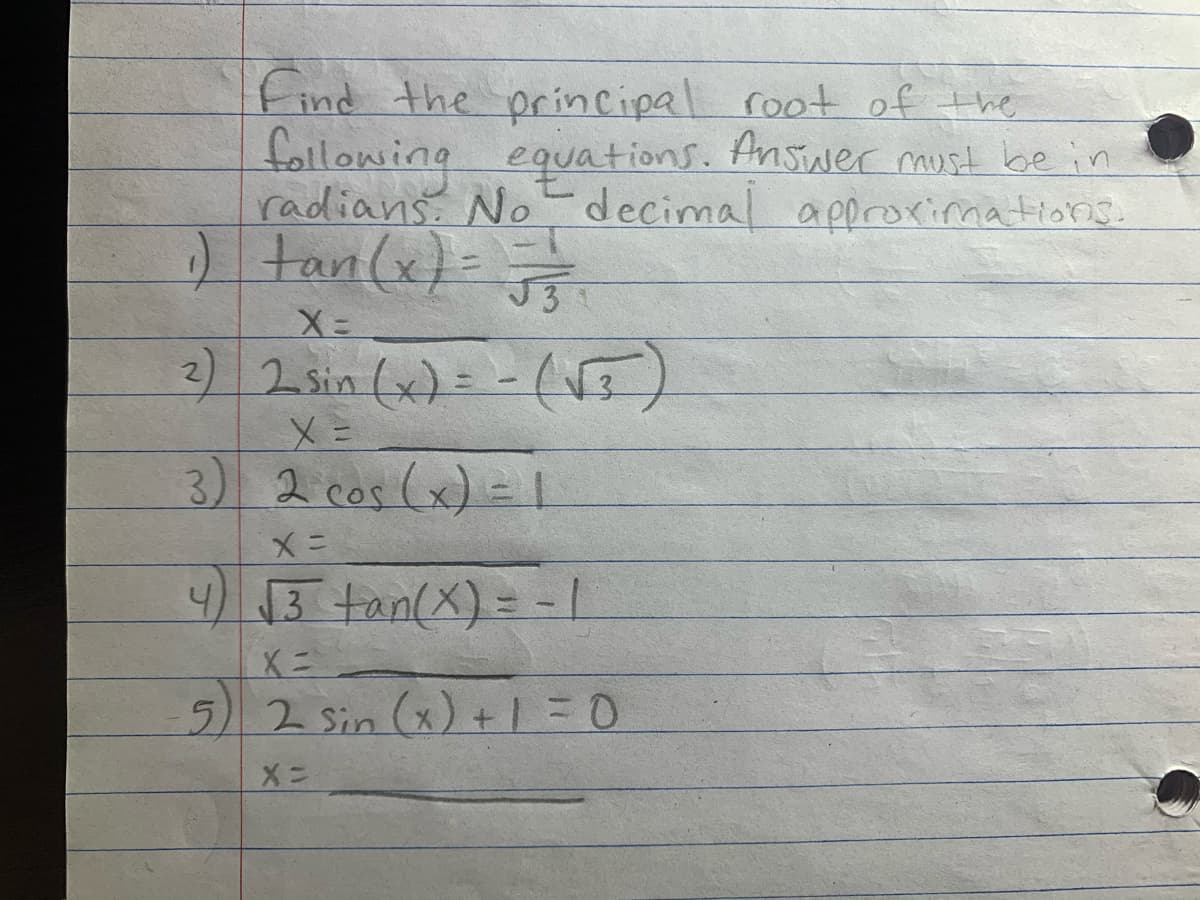 Find the principal root of the
following equations. Answer must be in
radians. No decimal approximations.
1) tan(x) = -1/√3
x = ____
2) 2 sin (x) = - (√3)
x = ____
3) 2 cos (x) = 1
x = ____
4) √3 tan(x) = -1
x = ____
5) 2 sin (x) + 1 = 0
x = ____